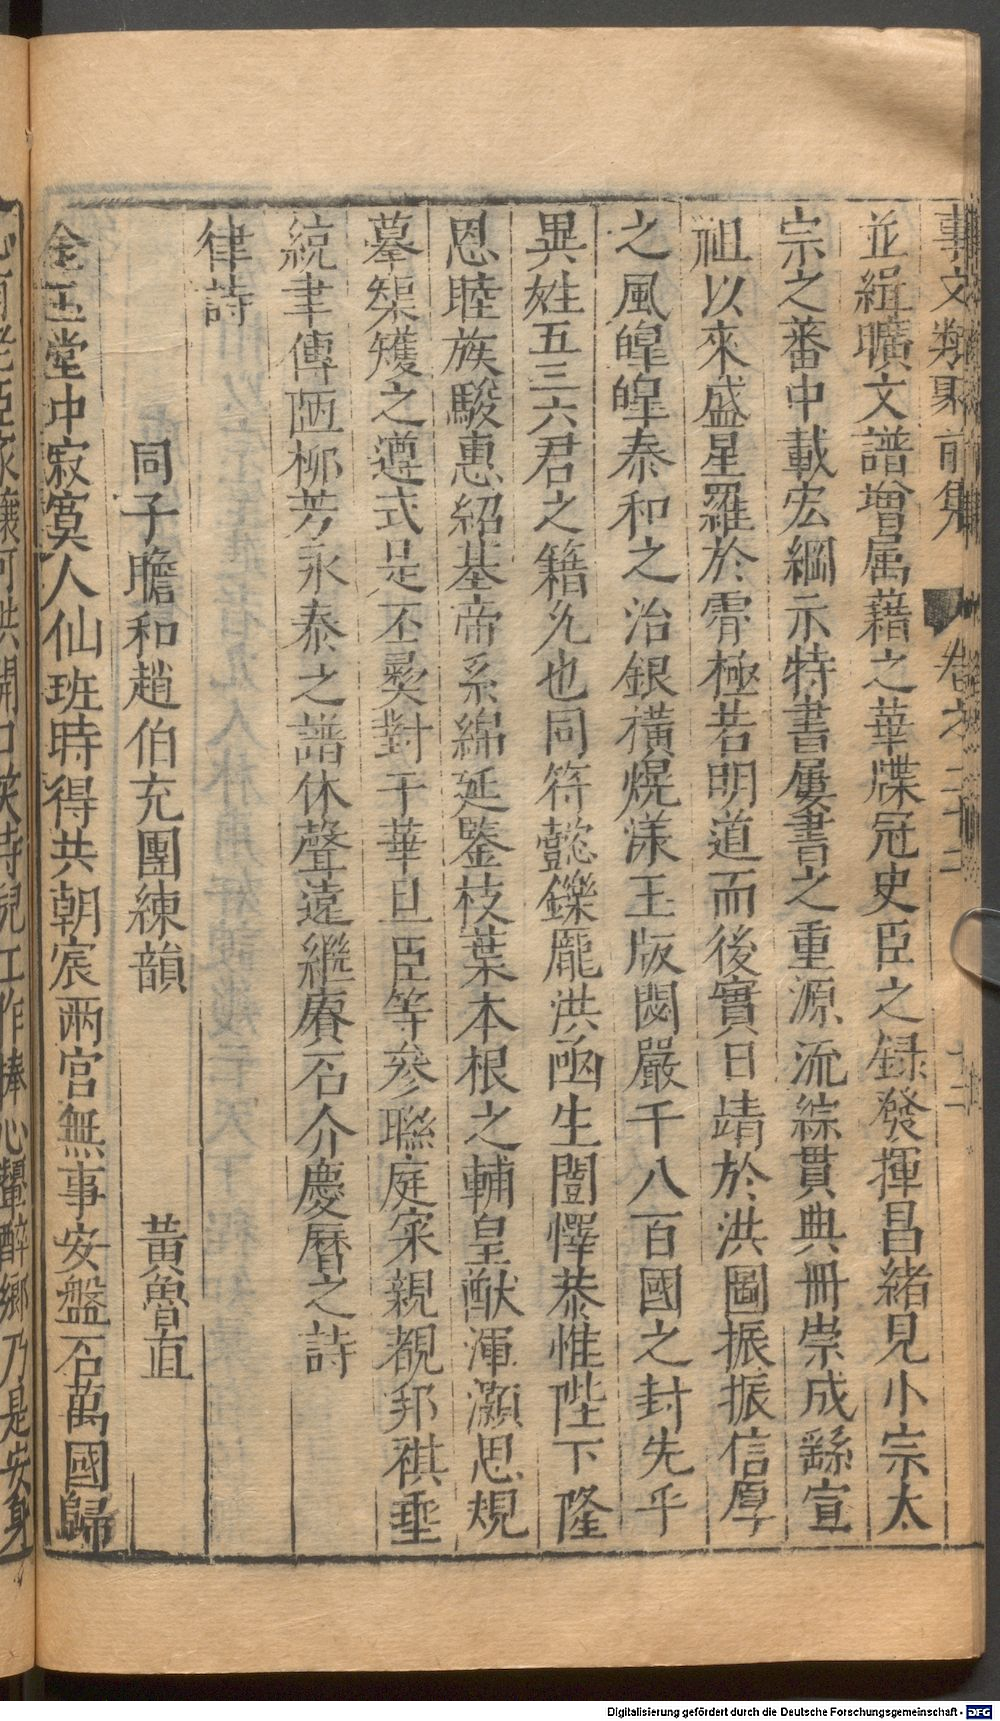 事文類聚前集 卷之二十二 十二
並緝曠文譜增属藉之華牒冠史臣之録發揮昌緒見小宗太
宗之蕃中載宏綱示特書屢書之重源流綜貫典冊崇成繇宣
祖以來盛星羅於霄極若明道而後實日靖於洪圖振振信厚
之風皥皥泰和之治銀橫熀漾玉版閎嚴千八百國之封先乎
異姓五三六君之籍允也同符懿鑠厖洪凾生闓懌恭惟陛下隆
恩睦族駿惠紹基帝系綿延鑒枝葉本根之輔皇猷渾灝思規
摹榘矱之遵式是丕彝對于華旦臣等參聯庭寀親覩邦祺垂
統聿傳匭柳芳永泰之譜休聲遠繼賡石介慶曆之詩
律詩
同子瞻和趙伯充團練韻 黃魯直
金玉堂中寂寞人仙班時得共朝宸兩宮無事安盤石萬國歸
心有老臣家釀可供開口笑侍兒工作捧心顰醉鄉乃是安身
Digitalisierung gefördert durch die Deutsche Forschungsgemeinschaft - DFG